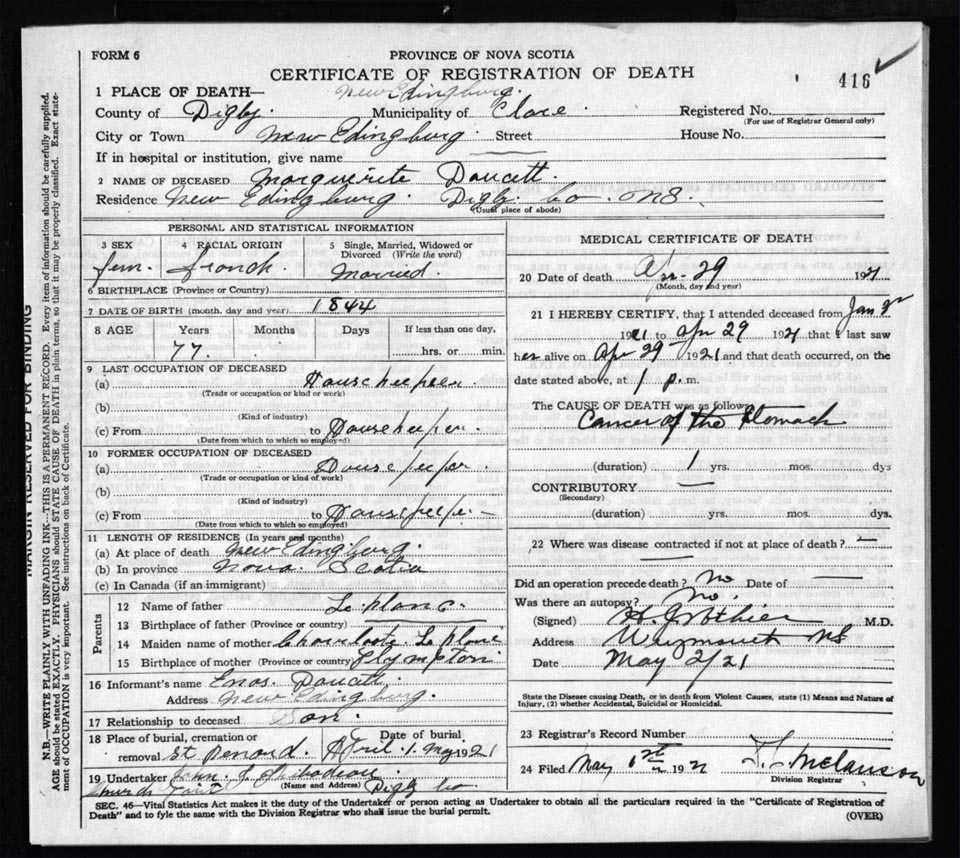 FORM 6
PROVINCE OF NOVA SCOTIA
CERTIFICATE OF REGISTRATION OF DEATH
416
1 PLACE OF DEATH— New Edingburg.
County of Digby Municipality of Clare Registered No.
(For use of Registrar General only)
City or Town New Edingburg Street House No.
If in hospital or institution, give name
2 NAME OF DECEASED Marguerite Doucett.
Residence New Edingburg. Digby Co. NS.
(Usual place of abode)
PERSONAL AND STATISTICAL INFORMATION
3 SEX 4 RACIAL ORIGIN 5 Single, Married, Widowed or
Divorced (Write the word)
fem. french. Married.
6 BIRTHPLACE (Province or Country)
7 DATE OF BIRTH (month, day and year) 1844
8 AGE Years Months Days If less than one day,
77. hrs. or min.
9 LAST OCCUPATION OF DECEASED
(a) Housekeeper.
(Trade or occupation or kind or work)
(b)
(Kind of industry)
(c) From to Housekeeper.
(Date from which to which so employed)
10 FORMER OCCUPATION OF DECEASED
(a) Housekeeper.
(Trade or occupation or kind of work)
(b)
(Kind of industry)
(c) From to Housekeeper
(Date from which to which so employed)
11 LENGTH OF RESIDENCE (In years and months)
(a) At place of death New Edingburg.
(b) In province Nova Scotia
(c) In Canada (if an immigrant)
Parents
12 Name of father Le planc.
13 Birthplace of father (Province or country)
14 Maiden name of mother Le Planc
15 Birthplace of mother (Province or country) Plympton
16 Informant's name Enos. Doucett.
Address New Edingburg.
17 Relationship to deceased Son.
18 Place of burial, cremation or Date of burial
removal St Benard. April. 1. May 1921
19 Undertaker John J. Thibodeau
(Name and Address) Digby Co
MEDICAL CERTIFICATE OF DEATH
20 Date of death Apr- 29 1921
(Month, day and year)
21 I HEREBY CERTIFY, that I attended deceased from Jan
1921 to Apr 29 1921 that I last saw
her alive on Apr 29 1921 and that death occurred, on the
date stated above, at 1 p. m.
The CAUSE OF DEATH was as follows
Cancer of the Stomach
(duration) 1 yrs. mos. dys
CONTRIBUTORY —
(Secondary)
(duration) yrs. mos. dys.
22 Where was disease contracted if not at place of death? —
Did an operation precede death? No Date of —
Was there an autopsy? No.
(Signed) M.D.
Address Weymouth NS
Date May 2/21
State the Disease causing Death, or in death from Violent Causes, state (1) Means and Nature of
Injury, (2) whether Accidental, Suicidal or Homicidal.
23 Registrar's Record Number
24 Filed May 1921
Division Registrar
SEC. 46—Vital Statistics Act makes it the duty of the Undertaker or person acting as Undertaker to obtain all the particulars required in the "Certificate of Registration of
Death" and to fyle the same with the Division Registrar who shall issue the burial permit.
(OVER)
MARGIN RESERVED FOR BINDING
N.B.—WRITE PLAINLY WITH UNFADING INK—THIS IS A PERMANENT RECORD. Every item of information should be carefully supplied.
AGE should be stated EXACTLY. PHYSICIANS should STATE CAUSE OF DEATH in plain terms, so that it may be properly classified. Exact state-
ment of OCCUPATION is very important. See instructions on back of Certificate.